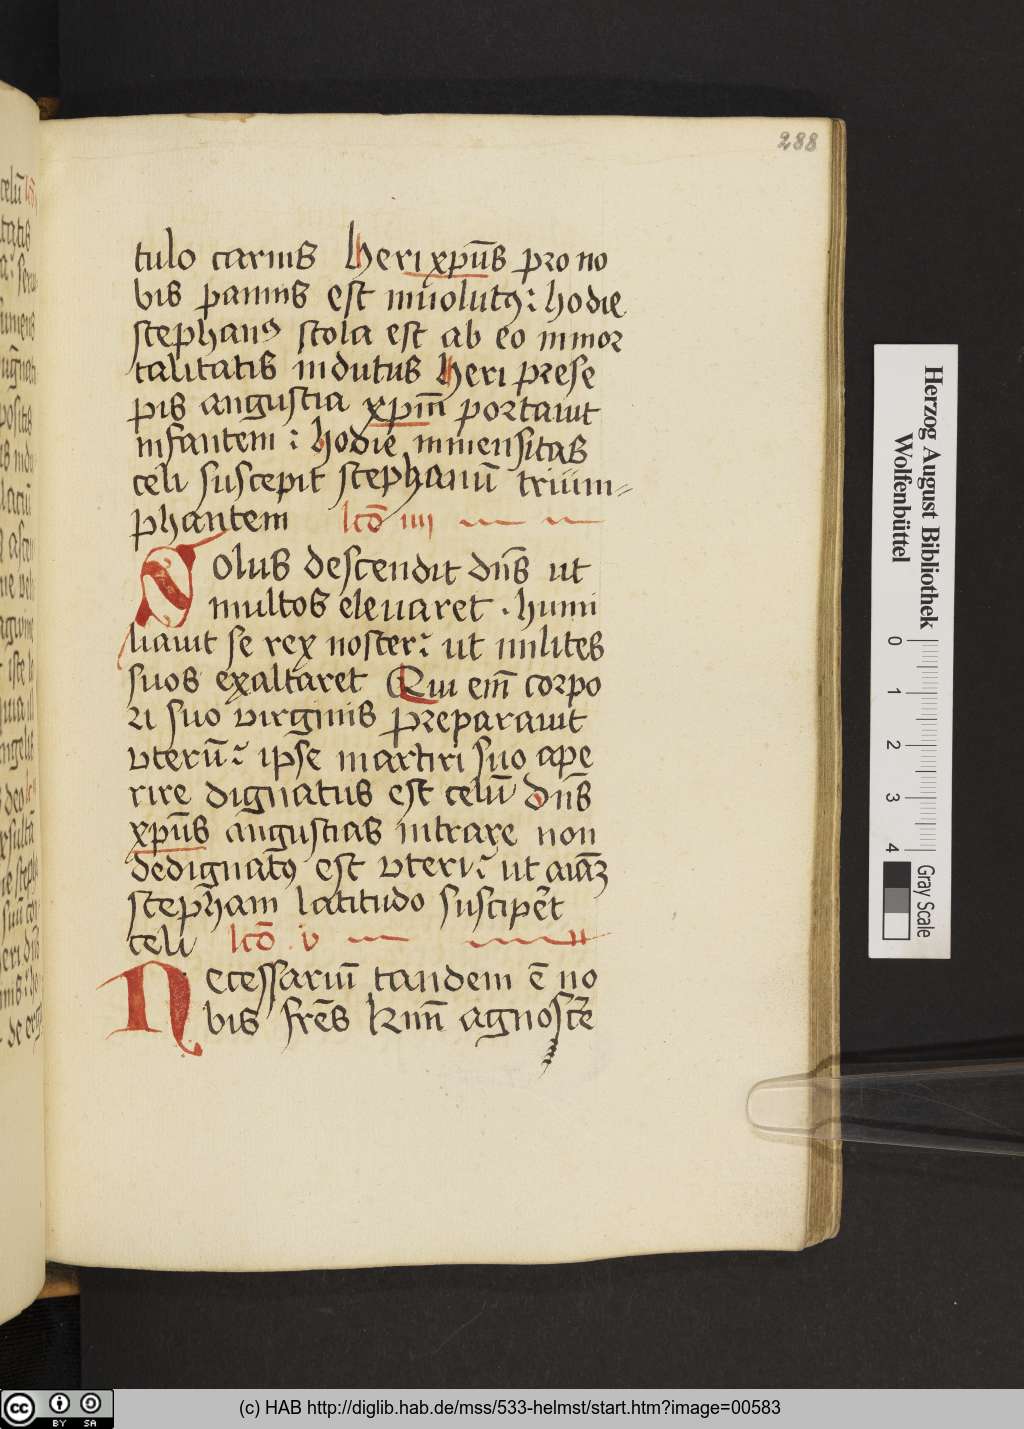 288
tulo carnis heri xpūs pro no
bis pannis est inuolutꝰ: hodie
stephanꝰ stola est ab eo inmor
talitatis indutus heri prese
pis angustia xpm̄ portauit
infantem : hodie inmensitas
celi suscepit stephanū trium=
phantem lcō iiij
Solus descendit dn̄s ut
multos eleuaret . humi
liauit se rex noster: ut milites
suos exaltaret Qui em̄ corpo
ri suo virginis preparauit
vterū: ipse martiri suo ape
rire dignatus est celū dn̄s
xpūs angustias intrare non
dedignatꝰ est vteri: ut aīaz
stepham latitudo suscip̄et
celi lcō . v
Necessariū tandem ē no
bis frēs kmī agnoscē
Herzog August Bibliothek
Wolfenbüttel
0 1 2 3 4
Gray Scale
(c) HAB http://diglib.hab.de/mss/533-helmst/start.htm?image=00583
cc BY SA